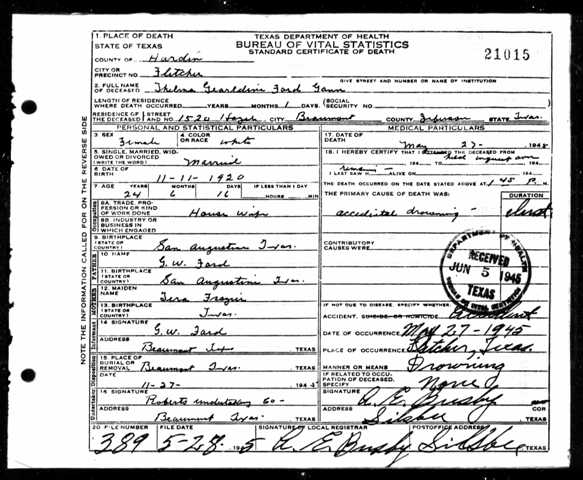 1 PLACE OF DEATH
STATE OF TEXAS
TEXAS DEPARTMENT OF HEALTH
BUREAU OF VITAL STATISTICS
STANDARD CERTIFICATE OF DEATH
21015
COUNTY OF Hardin
CITY OR PRECINCT NO. Fletcher
GIVE STREET AND NUMBER OR NAME OF INSTITUTION
2. FULL NAME OF DECEASED Thelma Gearldine Ford Gann
LENGTH OF RESIDENCE WHERE DEATH OCCURRED YEARS MONTHS 1 DAYS SOCIAL SECURITY NO.
RESIDENCE OF THE DECEASED STREET NO. 1520 Hazel CITY Beaumont COUNTY Jefferson STATE Texas
PERSONAL AND STATISTICAL PARTICULARS
MEDICAL PARTICULARS
3 SEX Female
4 COLOR OR RACE white
17. DATE OF DEATH May 27- 1945
5 SINGLE, MARRIED, WIDOWED OR DIVORCED (WRITE THE WORD) Married
18. I HEREBY CERTIFY THAT I ATTENDED THE DECEASED FROM held inquest over
remains
I LAST SAW H ALIVE ON
6 DATE OF BIRTH 11-11-1920
7 AGE YEARS MONTHS DAYS IF LESS THAN 1 DAY
24 6 16 HOURS MIN
THE DEATH OCCURRED ON THE DATE STATED ABOVE AT 45 P. M
THE PRIMARY CAUSE OF DEATH WAS:
DURATION
accidental drowning -
8A. TRADE, PROFESSION OR KIND OF WORK DONE House Wife
8B. INDUSTRY OR BUSINESS IN WHICH ENGAGED
9. BIRTHPLACE (STATE OR COUNTRY) San Augustine Texas
CONTRIBUTORY CAUSES WERE:
DEPARTMENT OF HEALTH
RECEIVED
JUN 5 1945
TEXAS
BUREAU OF VITAL STATISTICS
10 NAME G.W. Ford
11. BIRTHPLACE (STATE OR COUNTRY) San Augustine Texas
12. MAIDEN NAME
13. BIRTHPLACE (STATE OR COUNTRY) Texas
IF NOT DUE TO DISEASE, SPECIFY WHETHER:
ACCIDENT, SUICIDE OR HOMICIDE Accident
DATE OF OCCURRENCE May 27-1945
14 SIGNATURE G.W. Ford
ADDRESS Beaumont Tex TEXAS
PLACE OF OCCURRENCE Texas
MANNER OR MEANS Drowning
15. PLACE OF BURIAL OR REMOVAL Beaumont Texas. TEXAS
DATE
IF RELATED TO OCCUPATION OF DECEASED, SPECIFY None
SIGNATURE A. E. Busby
16 SIGNATURE Roberts undertaking Co-
ADDRESS Beaumont Texas. TEXAS
ADDRESS Silsbee TEXAS
20 FILE NUMBER FILE DATE SIGNATURE OF LOCAL REGISTRAR POSTOFFICE ADDRESS
389 5-28- 1945 A. E. Busby Silsbee TEXAS
NOTE THE INFORMATION CALLED FOR ON THE REVERSE SIDE
Occupation
FATHER
MOTHER
Informant
Disposition